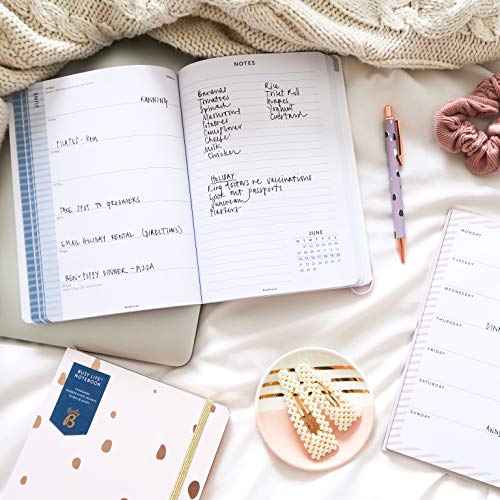 JUNE
RUNNING
PILATES - 8PM
TAKE SPOT TO GROOMERS
EMAIL HOLIDAY RENTAL (DIRECTIONS)
BEN + POPPY DINNER - PIZZA
NOTES
Bananas
Tomatoes
Spinach
Mushrooms
Potatoes
Cauliflower
Cheese
Milk
Chicken
Rice
Toilet Roll
Grapes
Yoghurt
Custard
HOLIDAY
Ring doctors re vaccinations
Look out passports
Suncream
Plasters
JUNE
M T W T F S S
BUSY LIFE
NOTEBOOK
Busy
B
MONDAY
TUESDAY
WEDNESDAY
THURSDAY
DINN
FRIDAY
SATURDAY
SUNDAY
ANN